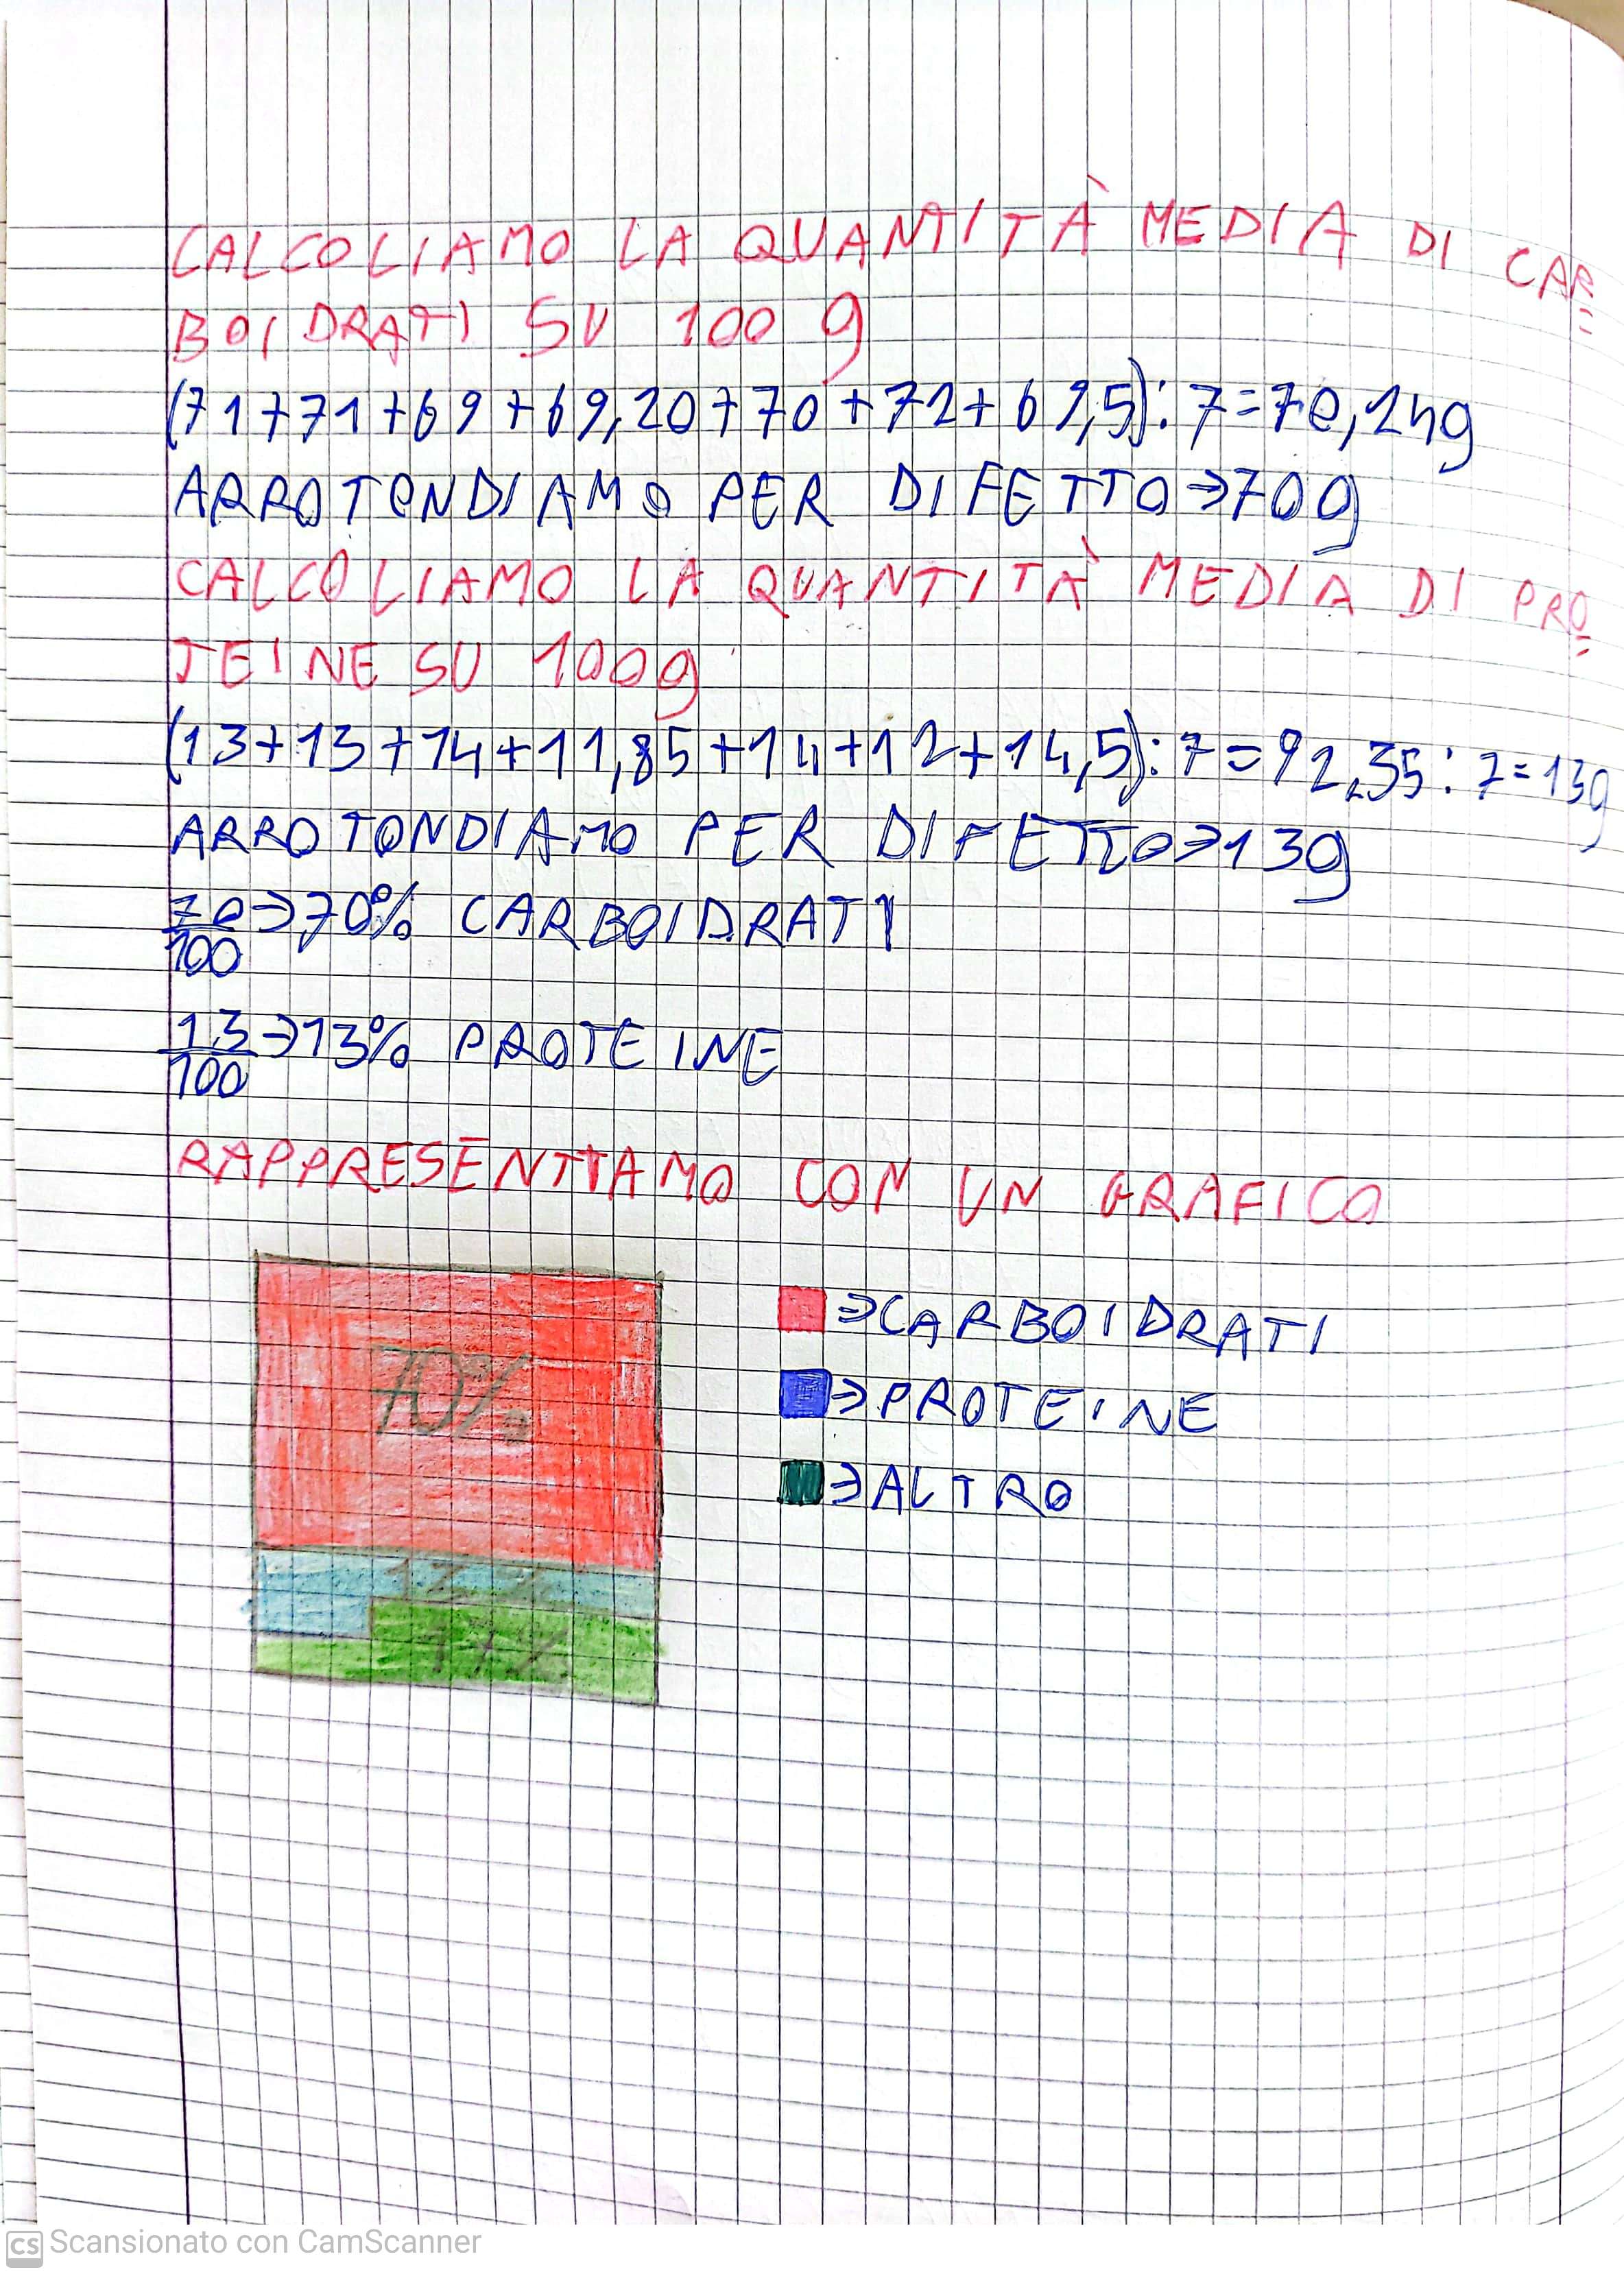 CALCOLIAMO LA QUANTITÀ MEDIA DI CAR=
BOIDRATI SU 100 g
(71+71+69+69,20+70+72+69,5):7=70,24g
ARROTONDIAMO PER DIFETTO⇒70g
CALCOLIAMO LA QUANTITÀ MEDIA DI PRO=
TEINE SU 100g
(13+13+14+11,85+14+12+14,5):7=92,35:7=13g
ARROTONDIAMO PER DIFETTO⇒13g
70/100⇒70% CARBOIDRATI
13/100⇒13% PROTEINE
RAPPRESENTIAMO CON UN GRAFICO
70%
⇒CARBOIDRATI
⇒PROTEINE
⇒ALTRO
17%
CS Scansionato con CamScanner